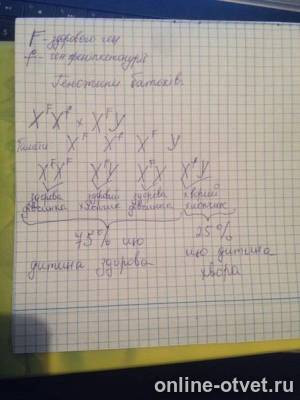 F - здорового ген
f - ген фенілкетонурії
Генотипи батьків:
X^F X^f × X^F У
X^F X^f X^F У
X^F X^F X^F У X^F X^f X^f У
здорова здоровий здорова хворий
дівчинка хлопчик дівчинка хлопчик
75% що 25%
дитина здорова що дитина
хвора
online-otvet.ru